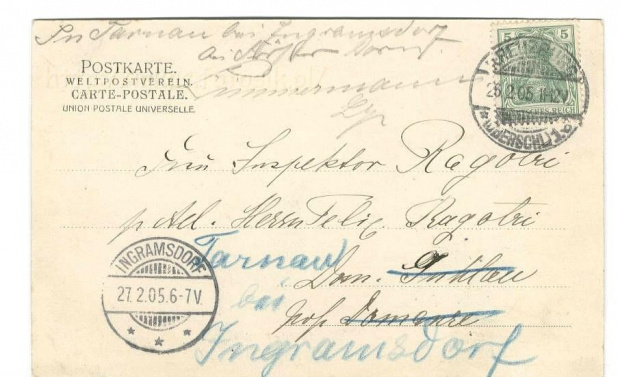 In Tarnau bei Ingramsdorf
bei
Zimmermann
POSTKARTE.
WELTPOSTVEREIN.
CARTE-POSTALE.
UNION POSTALE UNIVERSELLE
5 5
REICH
25.2.05.11-12V.
Frau Inspektor Ragotzi
p. Ad. Herrn Felix Ragotzi
Tarnau
Dom. Guhlau
bei
Post Domanze
Ingramsdorf
INGRAMSDORF
27.2.05.6-7V.
* * *